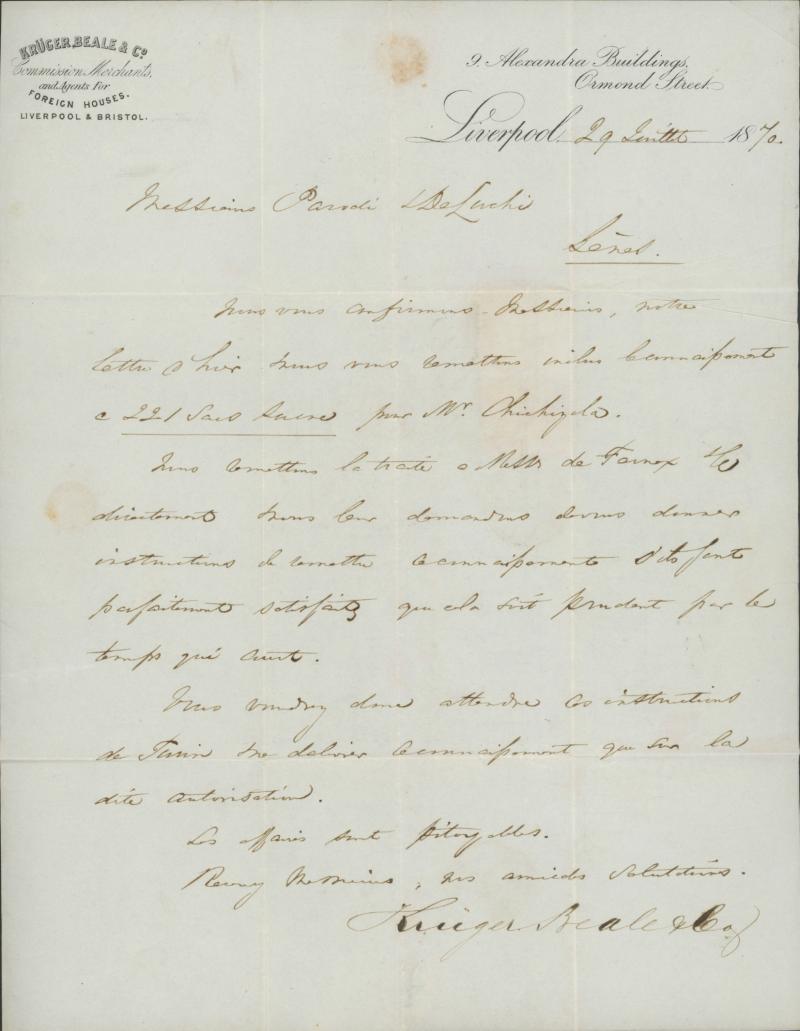 KRÜGER, BEALE & Co
Commission Merchants,
and Agents For
FOREIGN HOUSES.
LIVERPOOL & BRISTOL.
9. Alexandra Buildings,
Ormond Street.
Liverpool, 29 Juillet 1870.
Messieurs Parodi & DeLuchi
Gênes.
Nous vous confirmons Messieurs, notre
lettre d'hier & nous vous remettons inclus connaissement
à 221 Sacs Sucre pour Mr. Chichizola.
Nous remettons la traite à Messrs de Fernex & Co
directement & nous leur demandons de vous donner
instructions de remettre connaissements s'ils sont
parfaitement satisfaits que cela soit prudent par le
temps qui court.
Vous voudrez donc attendre ces instructions
de Turin & ne délivrer connaissement que sur la
dite autorisation.
Les affaires sont pitoyables.
Recevez Messieurs, nos amicales Salutations.
Krüger Beale & Co